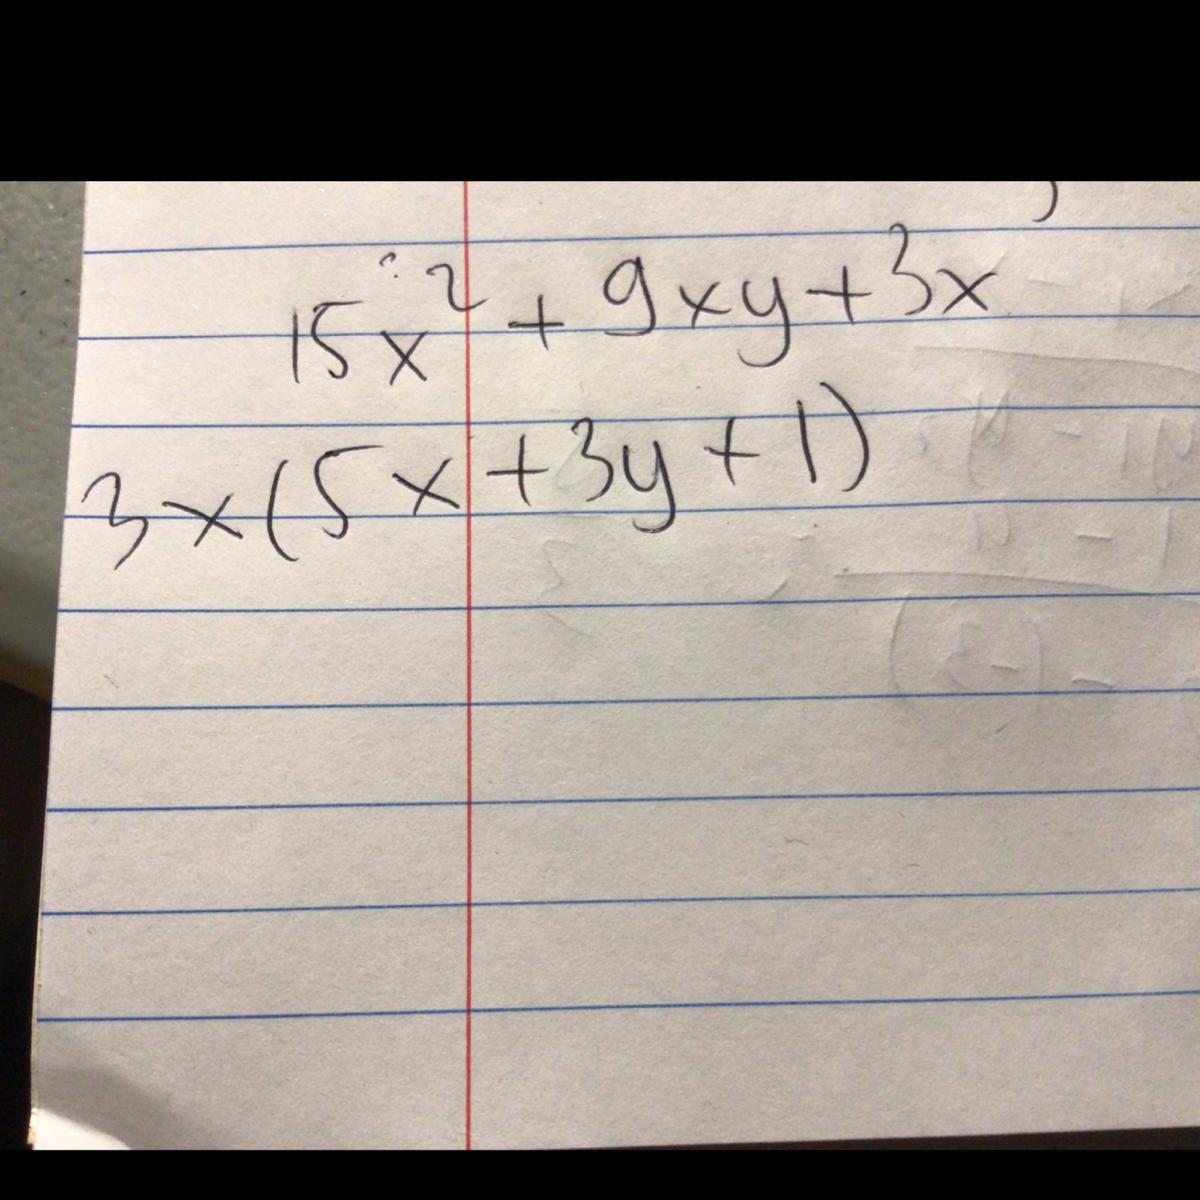 15x² + 9xy + 3x
3x(5x + 3y + 1)